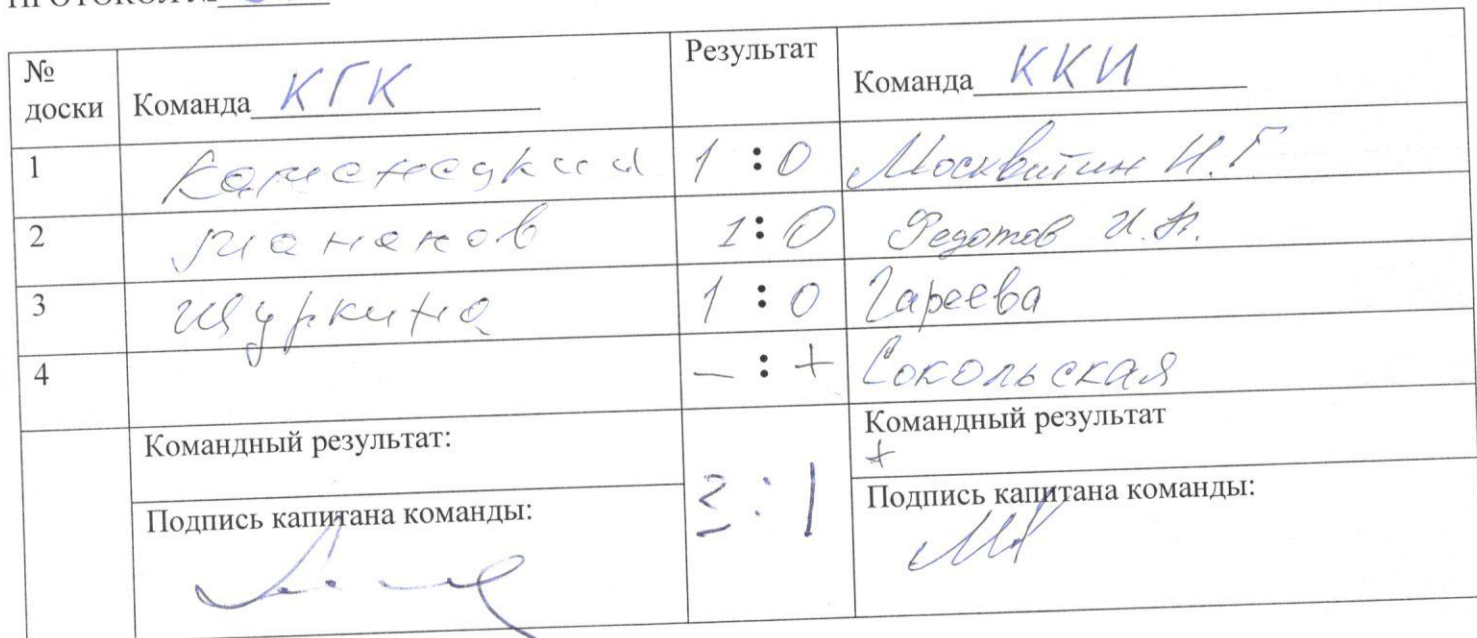 ПРОТОКОЛ №
№ доски Команда КГК Результат Команда ККИ
1 Каменецкий 1 : 0 Москвитин И.Г.
2 Манаков 1 : 0 Федотов И.
3 Шуркина 1 : 0 Гареева
4 – : + Сокольская
Командный результат: 3 : 1 Командный результат
+
Подпись капитана команды: Подпись капитана команды: